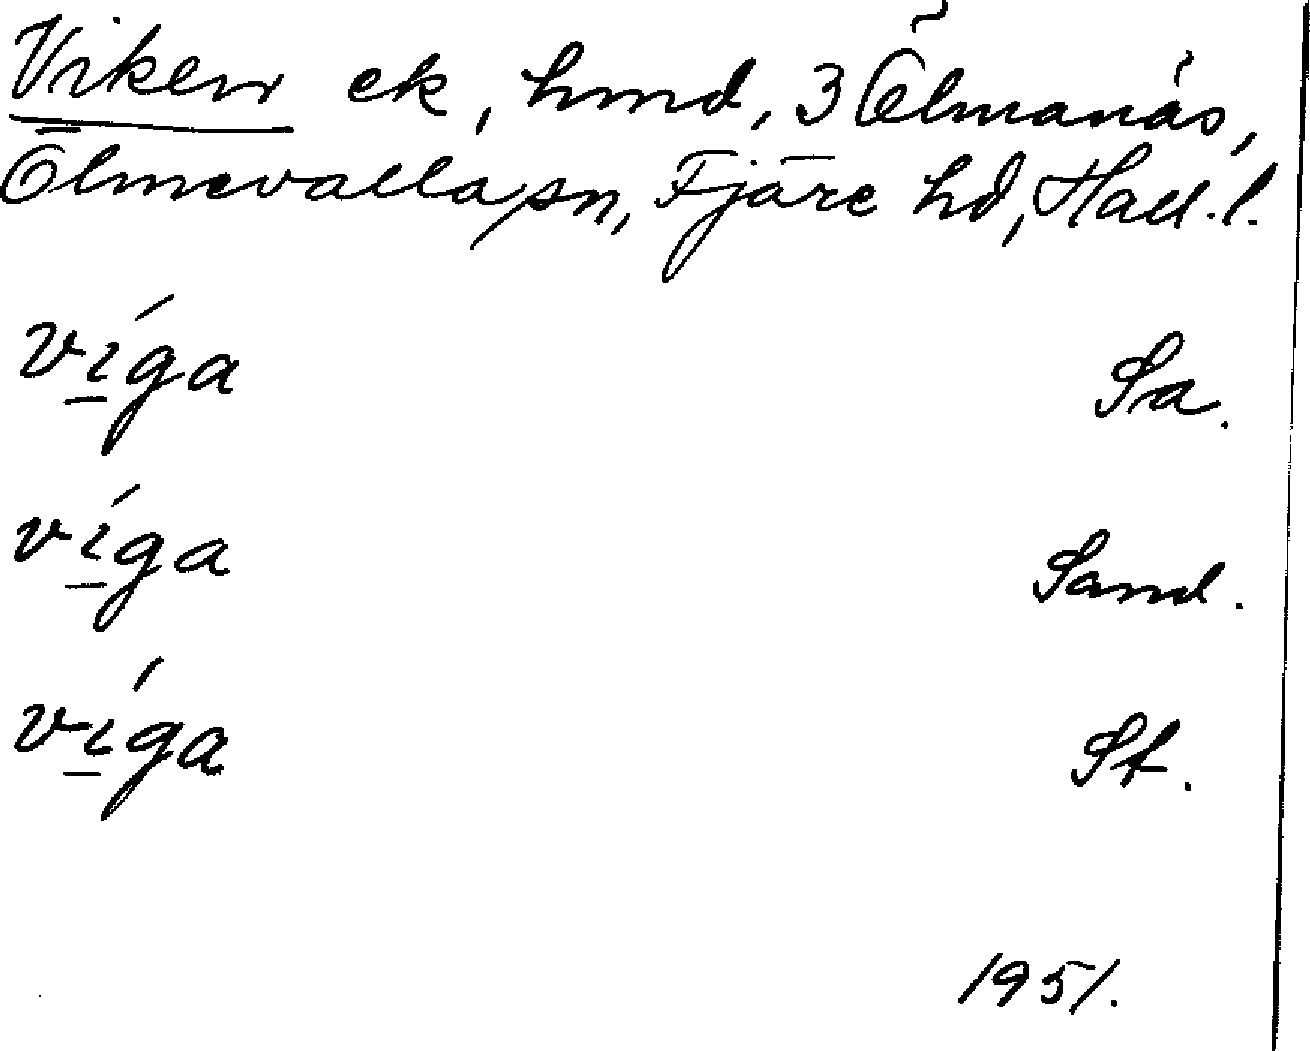 Viken ek, hmd, 3 Ölmanäs,
Ölmevalla sn, Fjäre hd, Hall. l.
ví̲ga Sa.
ví̲ga Sand.
ví̲ga St.
1951.